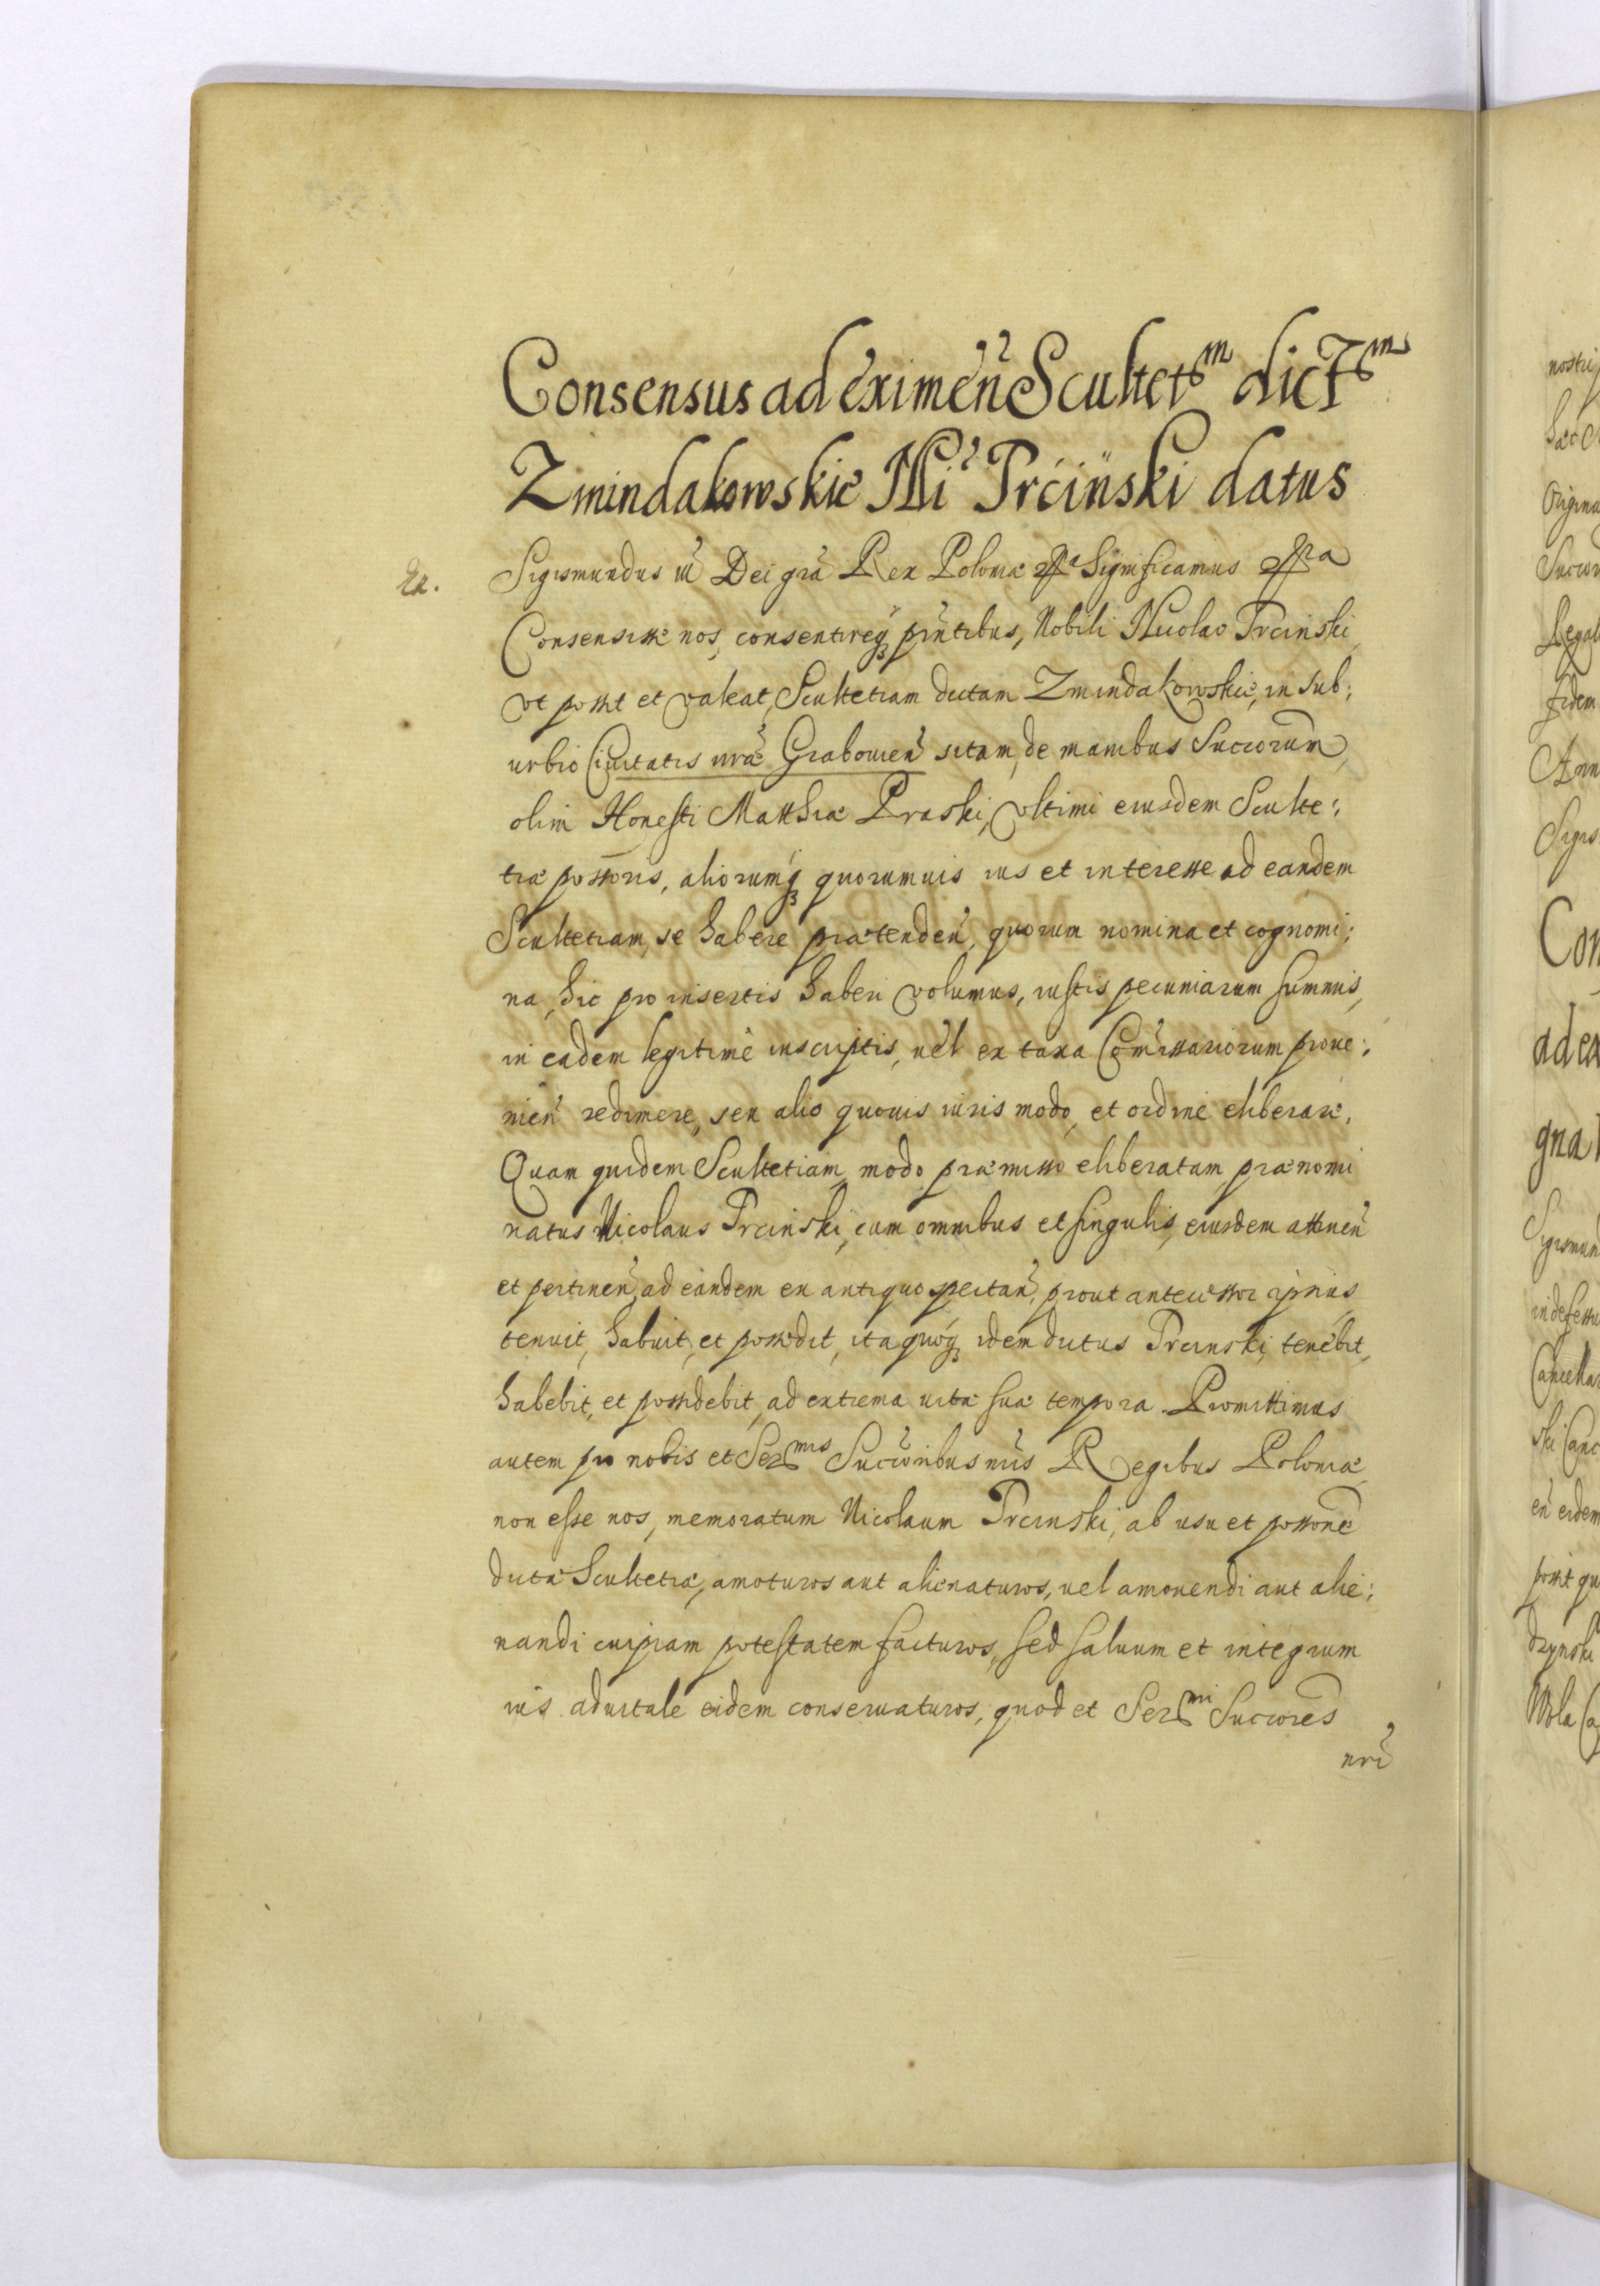 Consensus ad eximeñ Scultetm dictm
Zmindakowskie Nli Trcinski datus
Sigismundus iii Dei gra Rex Poloniæ Significamus
Consensisse nos, consentireq; pñtibus, Nobili Nicolao Trcinski,
vt possit et valeat, Scultetiam dictam Zmindakowskie, in sub:
urbio Ciuitatis nræ Grabouieñ sitam, de manibus Succorum,
olim Honesti Matthiæ Praski, vltimi eiusdem Sculte:
tiæ possoris, aliorumq; quorumuis ius et interesse ad eandem
Scultetiam, se habere prætendeñ, quorum nomina et cognomi:
na, hic pro insertis haberi volumus, iustis pecuniarum summis,
in eadem legitime inscriptis, uel ex taxa Comissariorum proue:
nieñ redimere, seu alio quouis iuris modo, et ordine eliberare.
Quam quidem Scultetiam, modo præmisso eliberatam, prænomi
natus Nicolaus Trcinski, cum omnibus et singulis, eiusdem attineñ
et pertineñ, ad eandem ex antiquo spectañ, prout antecessor ipsius
tenuit, habuit, et possedit, ita quoq; idem dictus Trcinski, tenebit,
habebit, et possidebit, ad extrema uitæ suæ tempora. Promittimus
autem pro nobis et Sermis Succoribus nris Regibus Poloniæ,
non esse nos, memoratum Nicolaum Trcinski, ab usu et possone
dictæ Scultetiæ, amoturos aut alienaturos, uel amouendi aut alie:
nandi cuipiam potestatem facturos, sed saluum et integrum
ius aduitale eidem conseruaturos, quod et Sermi Succores
nri
nostri
Origina
fidem
Ann
Con
ad ex
gna